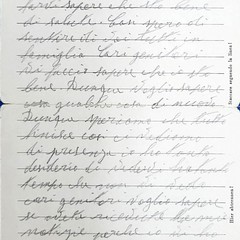 farvi sapere che sto bene
di salute. Con spero di
sentire di voi tutti in
famiglia Cari genitori
vi faccio sapere che io sto
bene Dunque voglio sapere
cosa qualche cosa di nuovo
Dunque speriamo che tutto
finisce così ci vediamo
di presenza io ho tanto
desiderio di vedervi
tempo che non vi vedo
cari genitori voglio sapere
se
perche io
Staccare seguendo la linea!
Hier abtrennen!